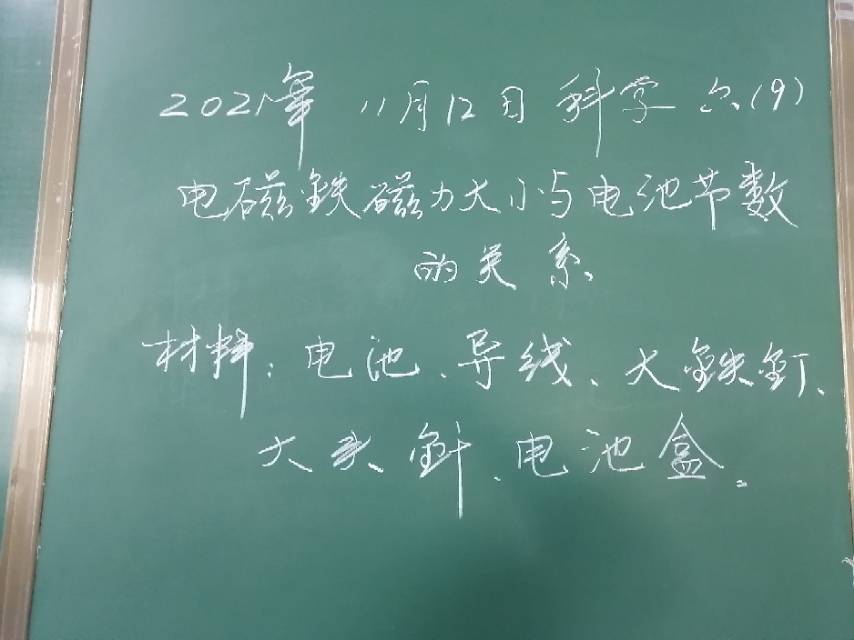 2021年 11月12日 科学 六(9)
电磁鉄磁力大小与电池节数
的关系
材料：电池、导线、大鉄釘、
大头針、电池盒。